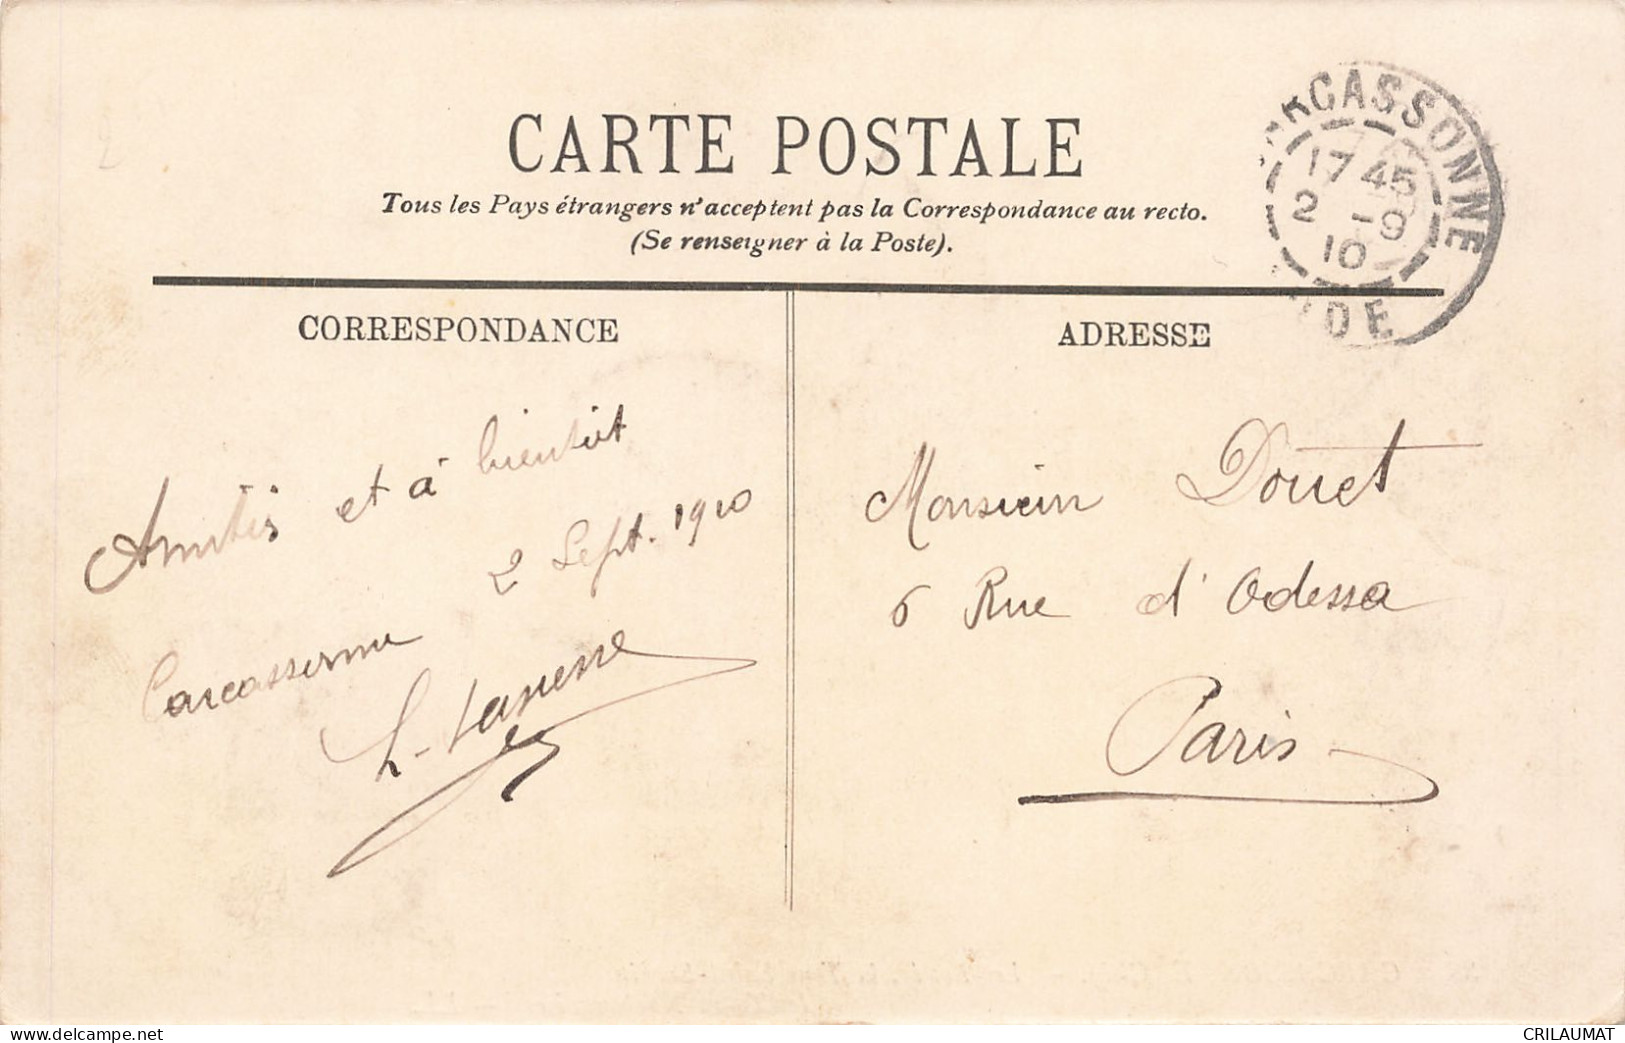 CARTE POSTALE
Tous les Pays étrangers n'acceptent pas la Correspondance au recto.
(Se renseigner à la Poste).
CARCASSONNE
17 45
2 -9
10
AUDE
CORRESPONDANCE
Amitiés et à bientôt
2 Sept. 1910
Carcassonne
ADRESSE
Monsieur Douet
6 Rue d'Odessa
Paris
www.delcampe.net
CRILAUMAT